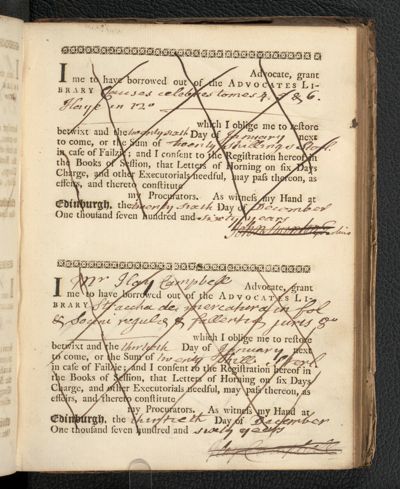 I Advocate, grant
me to have borrowed out of the ADVOCATES LI-
BRARY Causes celebres tomes 4. 5 & 6.
Hayo in 12o
which I oblige me to restore
betwixt and the twenty sixth Day of January next
to come, or the Sum of twenty shillings sterl.
in case of Failzie; and I consent to the Registration hereof in
the Books of Session, that Letters of Horning on six Days
Charge, and other Executorials needful, may pass thereon, as
effeirs, and thereto constitute
my Procurators. As witness my Hand at
Edinburgh, the twenty sixth Day of December
One thousand seven hundred and sixty years
I Mr Hay Campbell Advocate, grant
me to have borrowed out of the ADVOCATES LI-
BRARY Straccha de mercatura in fol
& regulæ & juris 8o
which I oblige me to restore
betwixt and the thirtieth Day of January next
to come, or the Sum of twenty Shill: Sterl
in case of Failzie; and I consent to the Registration hereof in
the Books of Session, that Letters of Horning on six Days
Charge, and other Executorials needful, may pass thereon, as
effeirs, and thereto constitute
my Procurators. As witness my Hand at
Edinburgh, the thirtieth Day of December
One thousand seven hundred and sixty years